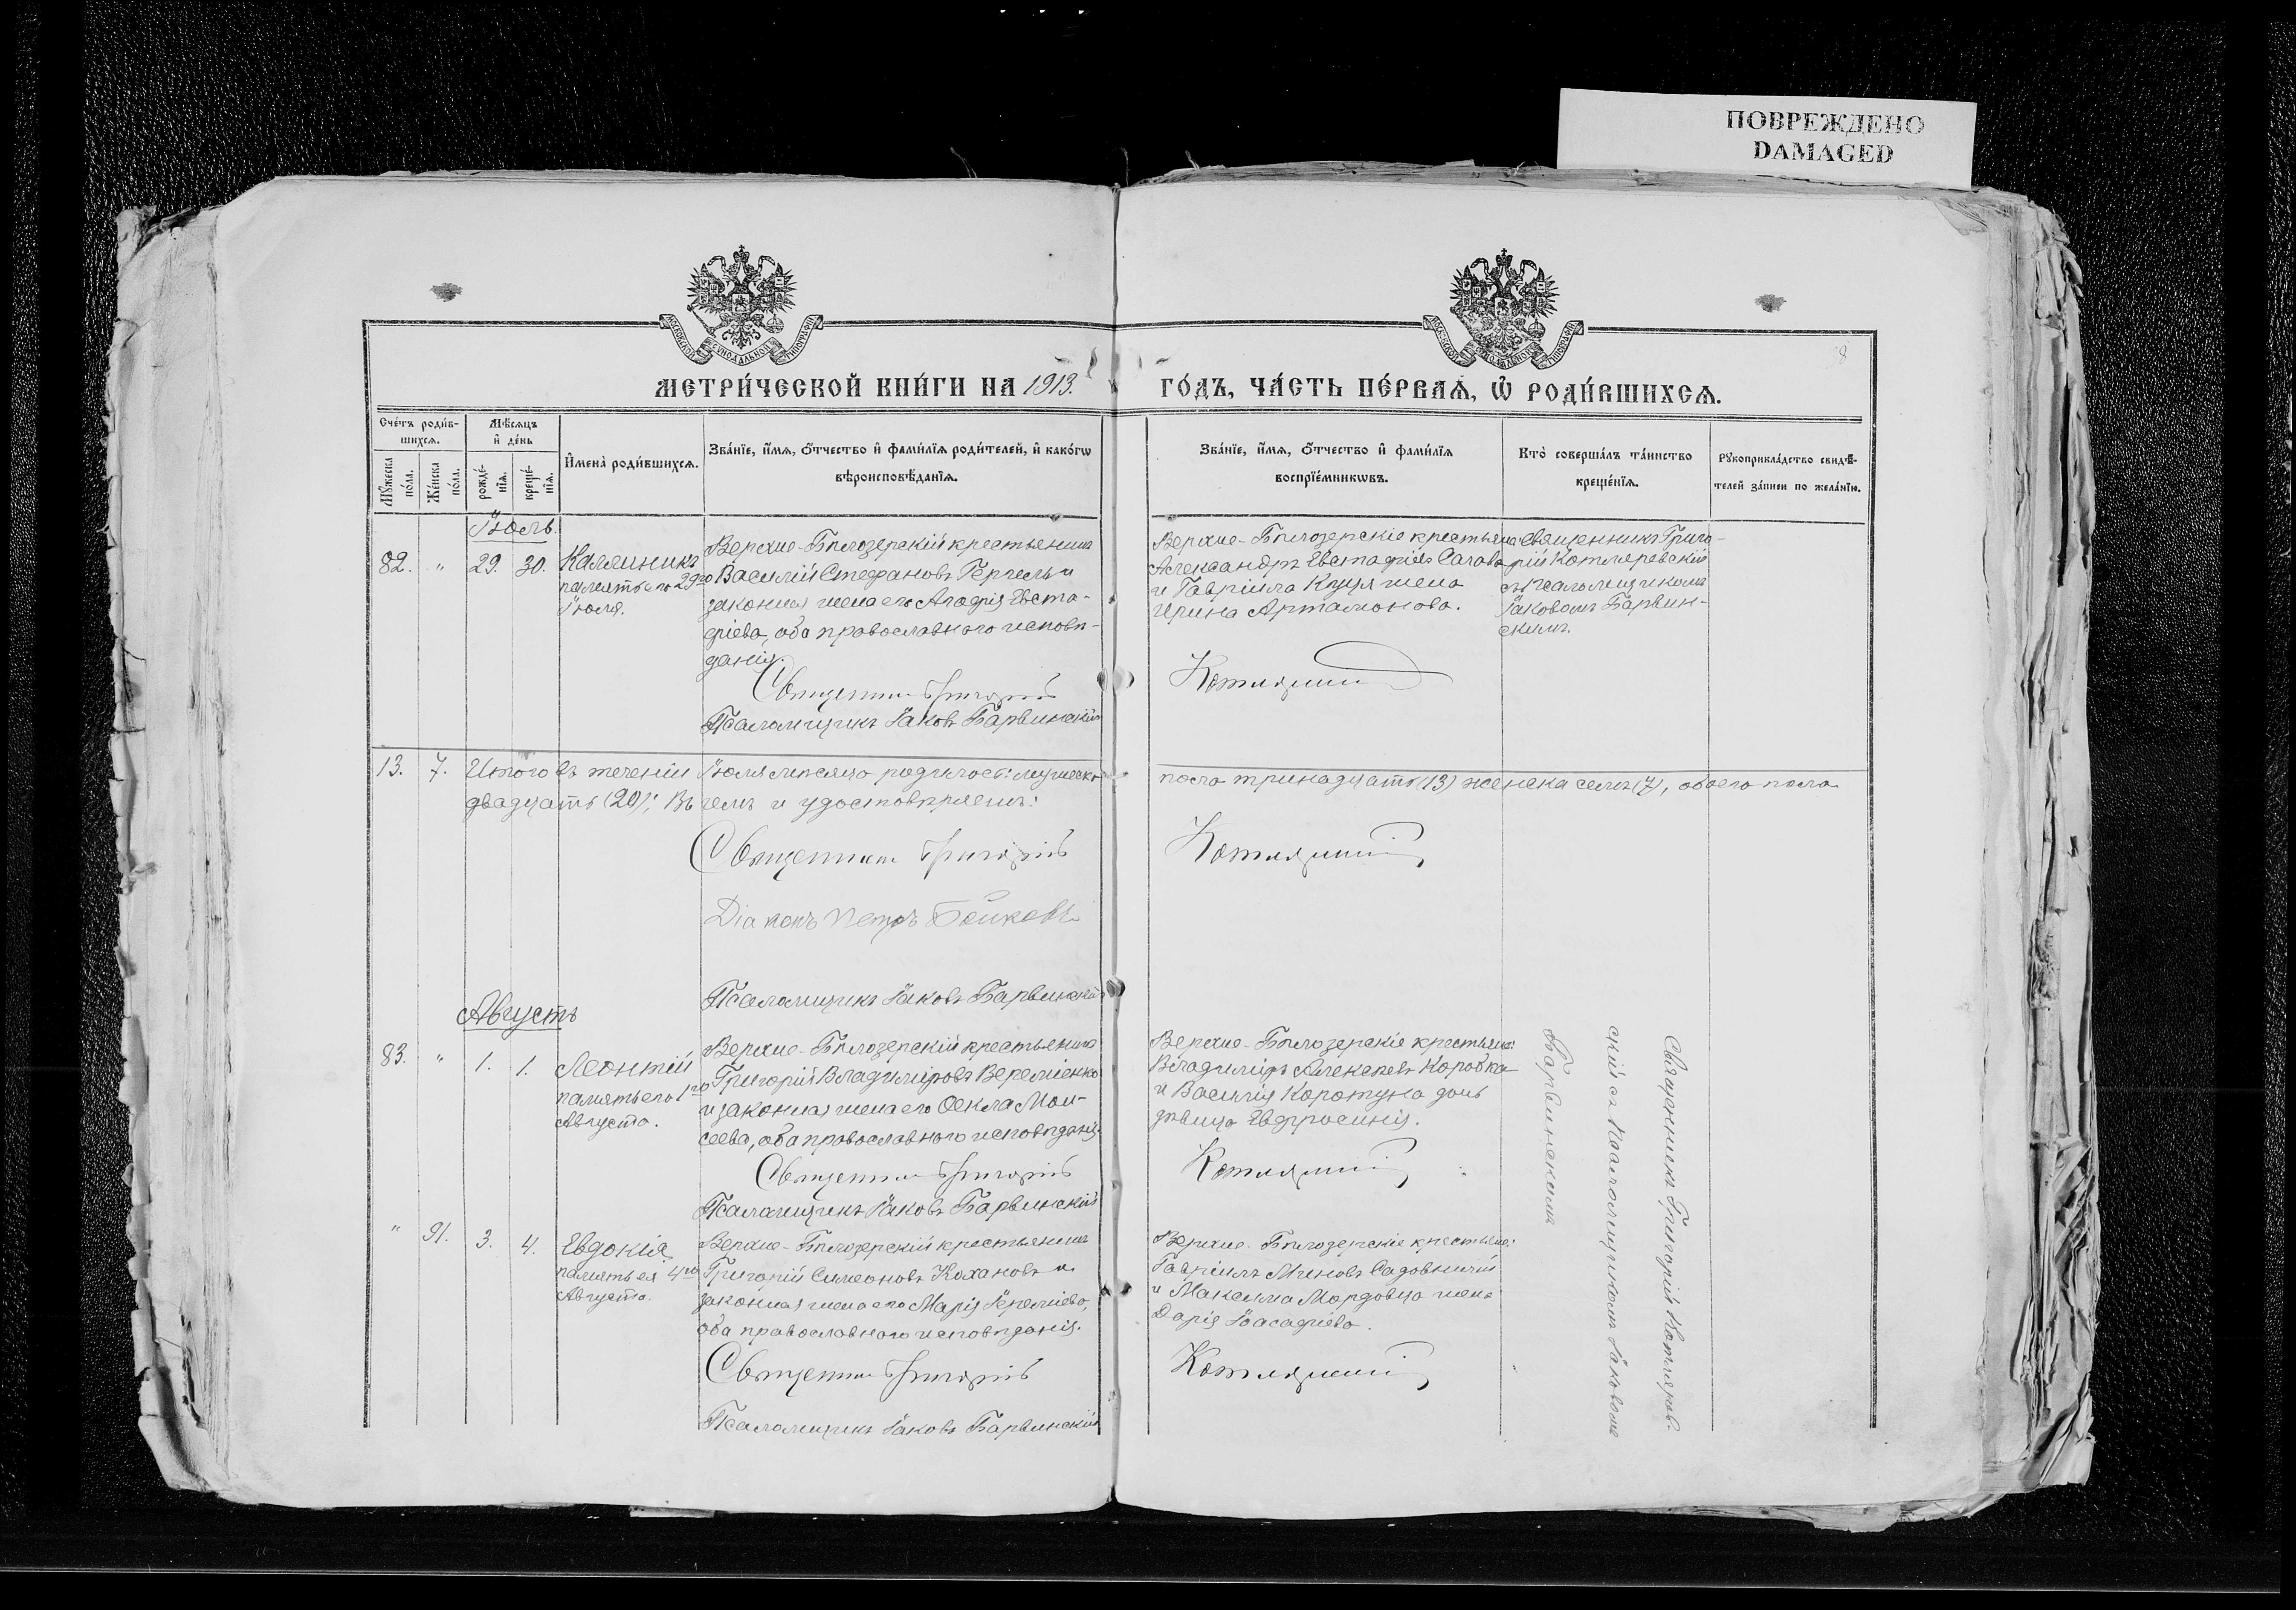 ПОВРЕЖДЕНО
DAMAGED
МЕТРИ́ЧЕСКОЙ КНИ́ГИ НА 1913.
ГО́ДЪ, ЧА́СТЬ ПЕ́РВАѦ, Ѡ҆ РОДИ́ВШИХСѦ.
Сче́тъ роди́в-
шихсѧ.
Мꙋ́жеска по́ла.
Же́нска по́ла.
Мѣ́сѧцъ
и҆ де́нь
рожде́-
нїѧ.
креще́-
нїѧ.
И҆мена̀ роди́вшихсѧ.
Зва́нїе, и҆́мѧ, ѻ҆́тчество и҆ фами́лїѧ роди́телей, и҆ како́гѡ
вѣроисповѣ́данїѧ.
Зва́нїе, и҆́мѧ, ѻ҆́тчество и҆ фами́лїѧ
воспрїе́мникѡвъ.
Кто̀ соверша́лъ та́инство
креще́нїѧ.
Рꙋкоприкла́дство свидѣ́-
телей за́писи по жела́нїю.
Іюль.
82. " 29. 30. Каллиникъ
память его 29го
Іюля.
Верхне-Бѣлозерскій крестьянинъ
Василій Стефановъ и
законная жена его Агафія Евста-
фіева, оба православнаго исповѣ-
данія.
Священникъ Григорій
Псаломщикъ Іаковъ Барвинскій
Верхне-Бѣлозерскіе крестьяне
Александръ Евстафіевъ
и Гавріила жена
Ирина Артамонова.
Котляревскій
Священникъ Григо-
рій Котляревскій
съ псаломщикомъ
Іаковомъ Барвин-
скимъ.
13. 7. Итого въ теченіи Іюля мѣсяца родилось: мужеска
пола тринадцать (13) женска семь (7), обоего пола
двадцать (20); въ чемъ и удостовѣряемъ:
Священникъ Григорій
Котляревскій
Діаконъ Петръ Бойковъ
Псаломщикъ Іаковъ Барвинскій
Августъ
83. " 1. 1. Леонтій
память его 1го
Августа.
Верхне-Бѣлозерскій крестьянинъ
Григорій Владиміровъ Веремѣенко
и законная жена его Ѳекла Мои-
сеева, оба православнаго исповѣданія.
Священникъ Григорій
Псаломщикъ Іаковъ Барвинскій
Верхне-Бѣлозерскіе крестьяне:
Владиміръ Алексѣевъ Коробка
и Василія Коротуна дочь
дѣвица Евфросинія.
Котляревскій
Священникъ Григорій Котлярев-
скій съ псаломщикомъ Іаковомъ
Барвинскимъ
" 91. 3. 4. Евдокія
память ея 4го
Августа.
Верхне-Бѣлозерскій крестьянинъ
Григорій Симеоновъ Кохановъ и
законная жена его Марія Іереміева,
оба православнаго исповѣданія.
Священникъ Григорій
Псаломщикъ Іаковъ Барвинскій
Верхне-Бѣлозерскіе крестьяне:
Гавріилъ Миновъ Садовничій
и Максима Мордовца жена
Дарія Іоасафіева.
Котляревскій